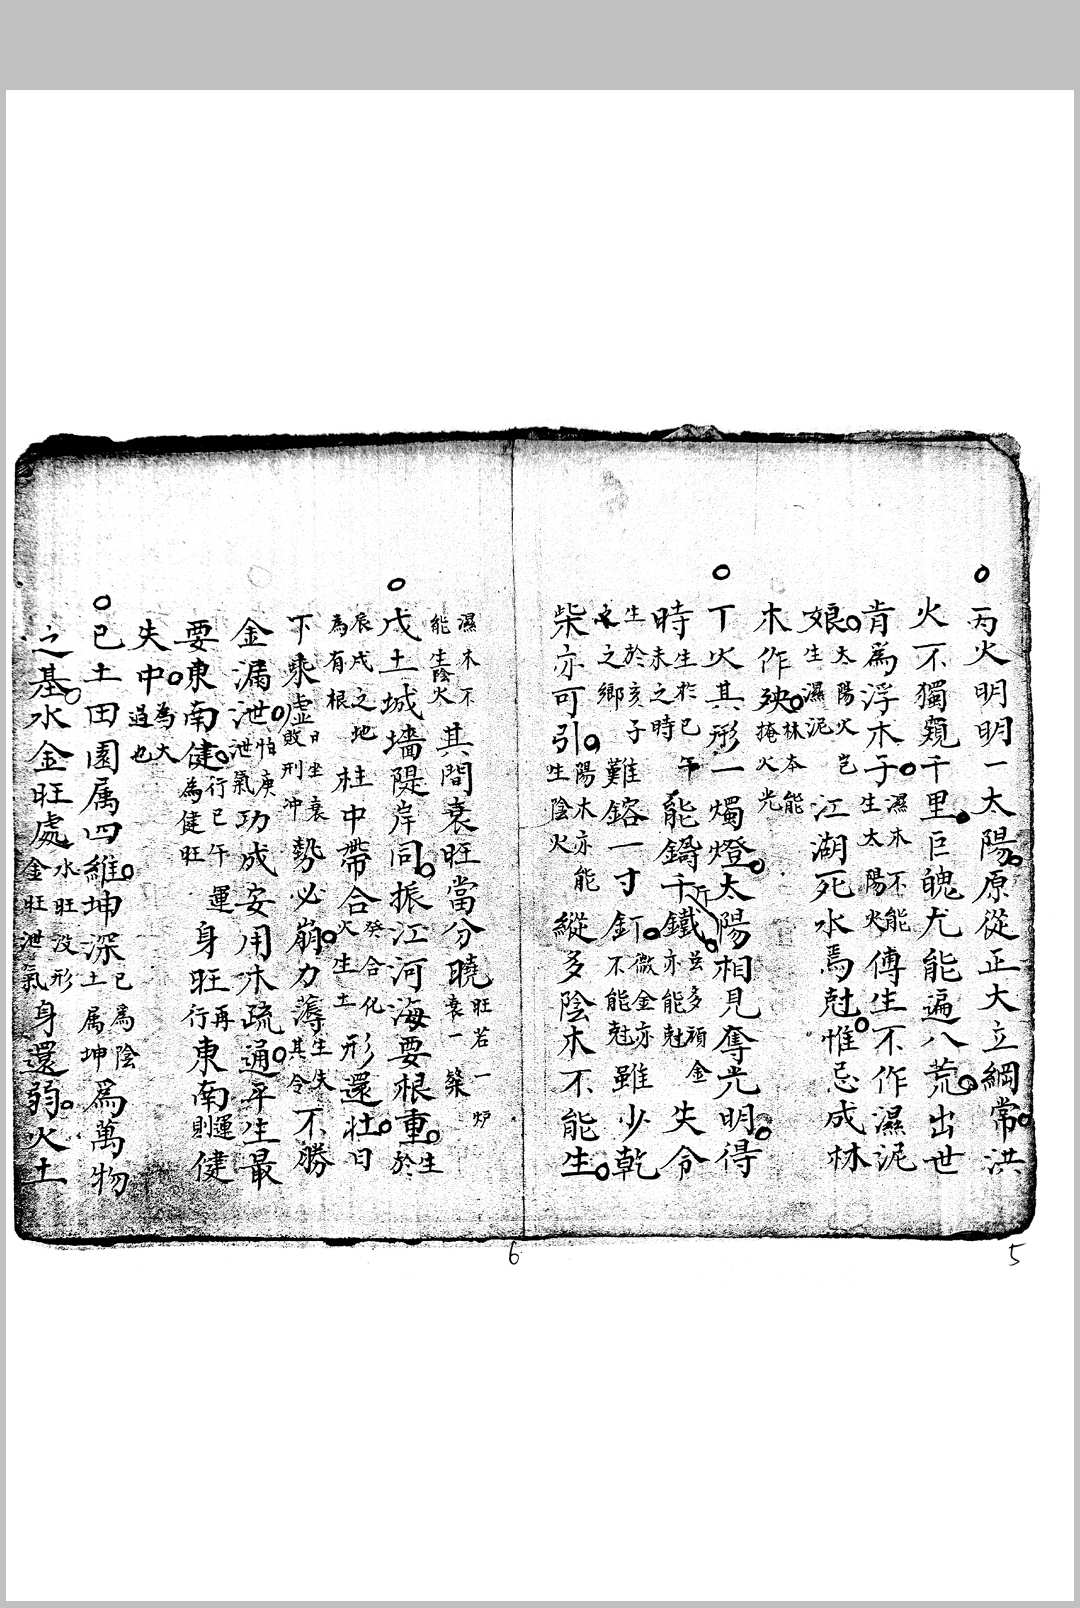 丙火明明一太陽原從正大立綱常洪
火不獨窺千里巨魄尤能遍八荒出世
肯爲浮木子濕木不能生太陽火傳生不作濕泥
娘太陽火豈生濕泥江湖死水焉尅惟忌成林
木作殃林本能掩火光
丁火其形一燭燈太陽相見奪光明得
時生於巳午未之時能鑄千斤鐵虽多頑金亦能尅失令
生於亥子之鄉難鎔一寸釘微金亦不能尅雖少乾
柴亦可引陽木亦能生陰火縱多陰木不能生
濕木不能生陰火其間衰旺當分曉旺若一衰一築炉
戊土城墻隄岸同振江河海要根重生於
辰戌之地為有根柱中帶合癸合化火生土形還壯日
下乘虛日坐衰敗刑冲勢必崩力薄生失其令不勝
金漏泄怕庚泄氣功成安用木疏通平生最
要東南健行巳午為健旺運身旺再行東南運則健
失中為太過也
己土田園属四維坤深己爲陰土属坤爲萬物
之基水金旺處水旺没形金旺泄氣身還弱火土
6
5